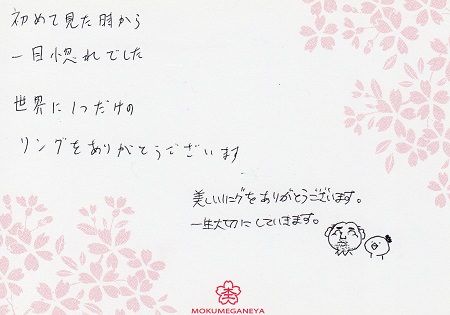 初めて見た時から
一目惚れでした
世界に1つだけの
リングをありがとうございます
美しいリングをありがとうございます。
一生大切にしていきます。
MOKUMEGANEYA